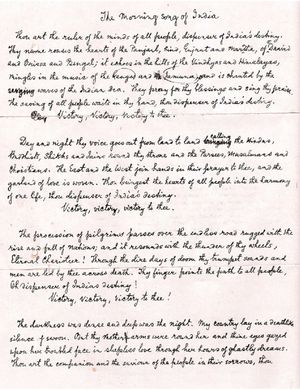 The Morning song of India
Thou art the ruler of the minds of all people, dispenser of India's destiny.
Thy name rouses the hearts of the Punjab, Sind, Gujrat and Maratha, of Dravid
and Orissa and Bengal; it echoes in the hills of the Vindhyas and Himalayas,
mingles in the music of the and Jumna, and is chanted by the
waves of the Indian Sea. They pray for thy blessings and sing thy praise.
The saving of all people waits in thy hand, thou dispenser of India's destiny.
Victory, Victory, Victory to thee.
Day and night thy voice goes out from land to land calling the Hindus,
Buddhists, Sikhs and Jains round thy throne and the Parsees, Mussalmans and
Christians. The East and the West join hands in their prayer to thee, and the
garland of love is woven. Thou bringest the hearts of all people into the harmony
of one life, thou dispenser of India's destiny.
Victory, victory, victory to thee.
The procession of pilgrims passes over the endless road rugged with the
rise and fall of nations; and it resounds with the thunder of thy wheels,
Eternal Charioteer! Through the dire days of doom thy trumpet sounds and
men are led by thee across death. Thy finger points the path to all people,
Oh dispenser of India's destiny!
Victory, victory, victory to thee!
The darkness was dense and deep was the night. My country lay in a deathlike
silence of swoon. But thy mother arms were round her and thine eyes gazed
upon her troubled face in sleepless love through her hours of ghastly dreams.
Thou art the companion and the saviour of the people in their sorrows, thou